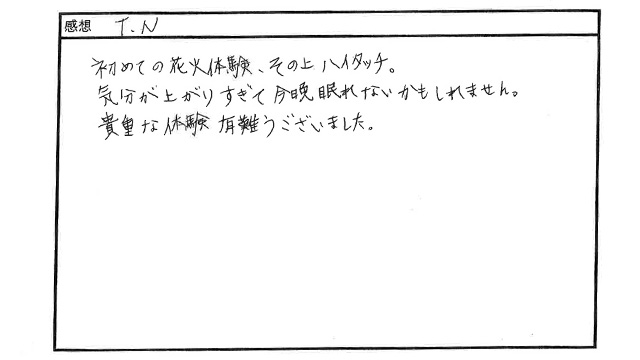 感想 T.N
初めての花火体験、その上ハイタッチ。
気分が上がりすぎて今晩眠れないかもしれません。
貴重な体験有難うございました。